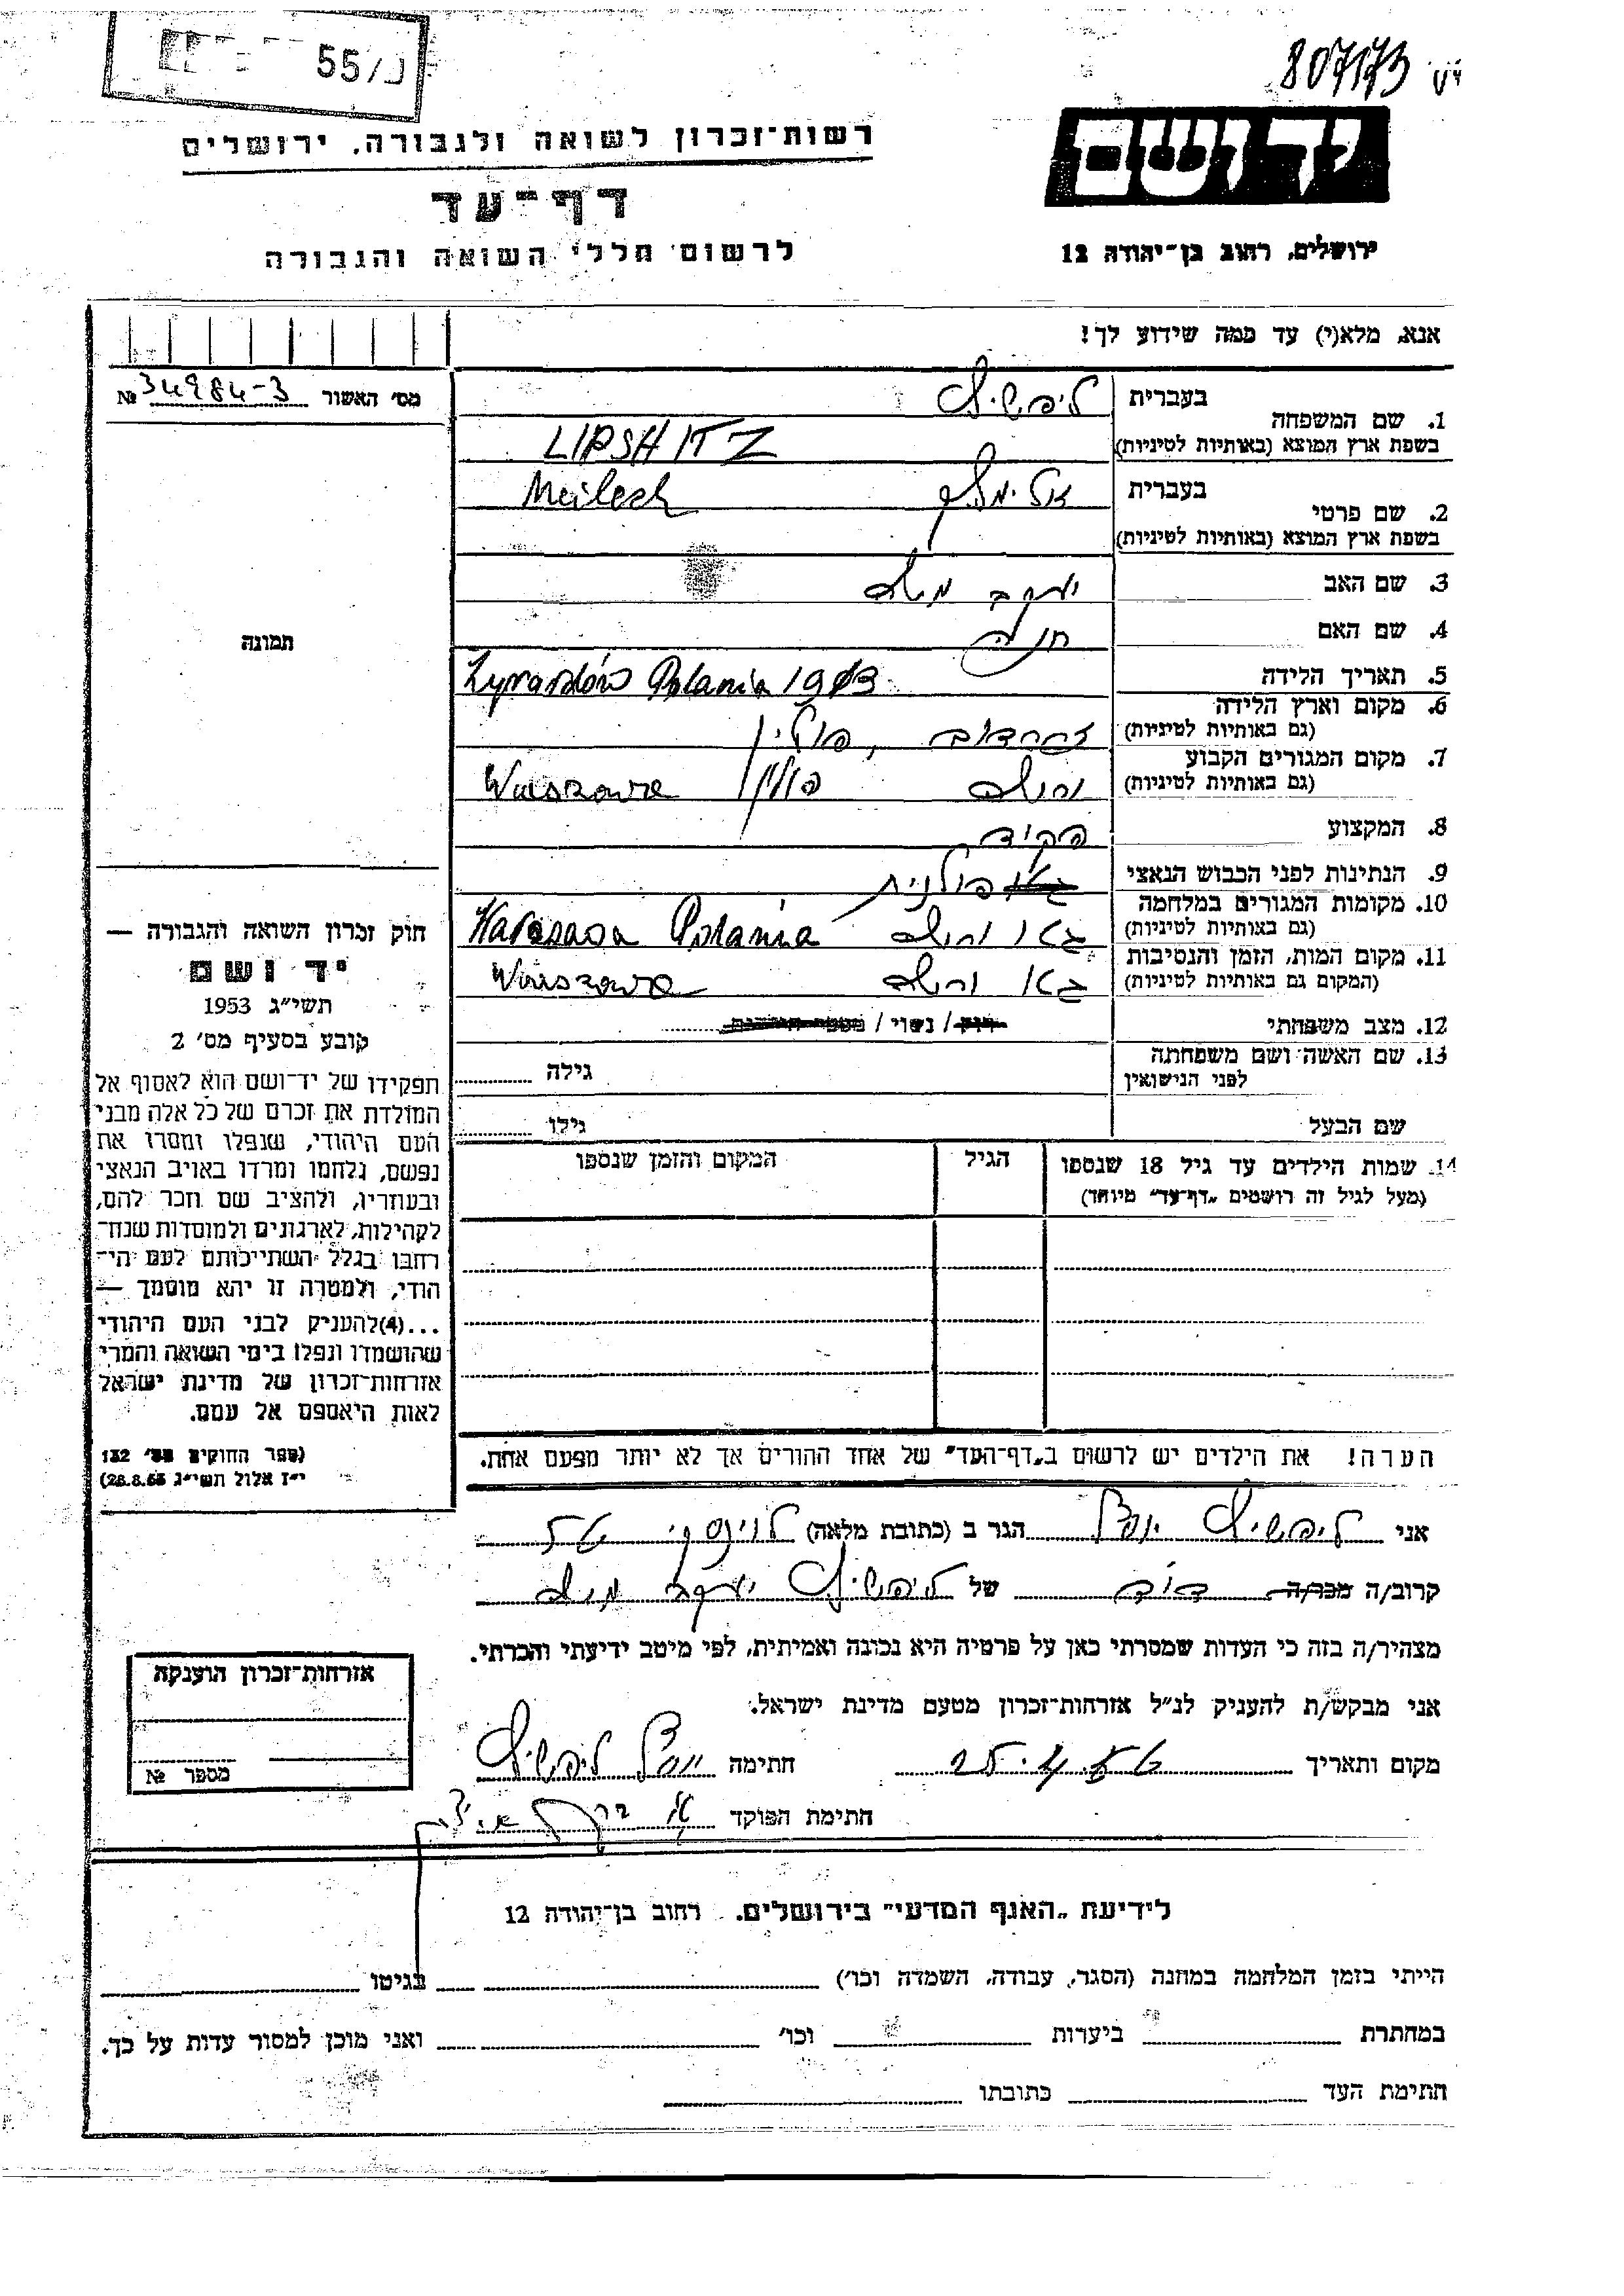 55/נ
807173
רשות־זכרון לשואה ולגבורה, ירושלים
דף־עד
לרשום חללי השואה והגבורה
יד ושם
ירושלים, רחוב בן־יהודה 12
אנא, מלא(י) עד כמה שידוע לך!
מס' האשור № 34984-3
1. שם המשפחה בעברית ליפשיץ
בשפת ארץ המוצא (באותיות לטיניות) LIPSHITZ
2. שם פרטי בעברית אלימלך Meilech
בשפת ארץ המוצא (באותיות לטיניות)
3. שם האב יעקב משה
4. שם האם חנה
5. תאריך הלידה Zyrardów Polania 1913
6. מקום וארץ הלידה (גם באותיות לטיניות) פולין
7. מקום המגורים הקבוע (גם באותיות לטיניות) ורשה פולין Warszawa
8. המקצוע פקיד
9. הנתינות לפני הכבוש הנאצי פולנית
10. מקומות המגורים במלחמה (גם באותיות לטיניות) גטו ורשה Polania
11. מקום המות, הזמן והנסיבות (המקום גם באותיות לטיניות) גטו ורשה Warszawa
12. מצב משפחתי רווק / נשוי / מספר הילדים
13. שם האשה ושם משפחתה לפני הנישואין גילה
שם הבעל גילו
14. שמות הילדים עד גיל 18 שנספו (מעל לגיל זה רושמים "דף־עד" מיוחד) הגיל המקום והזמן שנספו
הערה! את הילדים יש לרשום ב"דף־העד" של אחד ההורים אך לא יותר מפעם אחת.
תמונה
חוק זכרון השואה והגבורה —
יד ושם
תשי"ג 1953
קובע בסעיף מס' 2
תפקידו של יד־ושם הוא לאסוף אל
המולדת את זכרם של כל אלה מבני
העם היהודי, שנפלו ומסרו את
נפשם, נלחמו ומרדו באויב הנאצי
ובעוזריו, ולהציב שם וזכר להם,
לקהילות, לארגונים ולמוסדות שנח־
רחבו בגלל השתייכותם לעם הי־
הודי, ולמטרה זו יהא מוסמך —
...(4)להעניק לבני העם היהודי
שהושמדו ונפלו בימי השואה והמרי
אזרחות־זכרון של מדינת ישראל
לאות היאספם אל עמם.
(ספר החוקים מס' 132
י"ז אלול תשי"ג 28.8.53)
אני ליפשיץ הגר ב (כתובת מלאה)
קרוב/ה מכר/ה דוד של ליפשיץ יעקב משה
מצהיר/ה בזה כי העדות שמסרתי כאן על פרטיה היא נכונה ואמיתית, לפי מיטב ידיעתי והכרתי.
אני מבקש/ת להעניק לנ"ל אזרחות־זכרון מטעם מדינת ישראל.
מקום ותאריך חתימה ליפשיץ
חתימת הפוקד
אזרחות־זכרון הוענקה
מספר №
לידיעת "האגף המדעי" בירושלים. רחוב בן־יהודה 12
הייתי בזמן המלחמה במחנה (הסגר, עבודה, השמדה וכו') בגיטו
במחתרת ביערות וכו' ואני מוכן למסור עדות על כך.
חתימת העד כתובתו